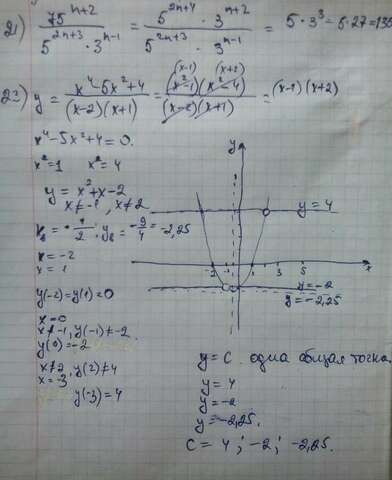 21) 75^(n+2) / (5^(2n+3) · 3^(n-1)) = (5^(2n+4) · 3^(n+2)) / (5^(2n+3) · 3^(n-1)) = 5·3^3 = 5·27=135
(x-1) (x+2)
23) y = (x^4-5x^2+4) / ((x-2)(x+1)) = (x^2-1)(x^2-4) / ((x-2)(x+1)) = (x-1)(x+2)
x^4-5x^2+4=0.
x^2=1 x^2=4
y = x^2+x-2
x≠-1, x≠2
y
y=4
x_в = -1/2; y_в = -9/4 = -2,25
x=-2
x=1
-2 -1 1 3 5 x
y(-2)=y(1)=0
y=-2
y=-2,25
x=0
x≠-1, y(-1)≠-2
y(0)=-2
y=c одна общая точка.
x≠2, y(2)≠4
x=-3
y=4
y(-3)=4
y=-2
y=-2,25.
c = 4; -2; -2,25.